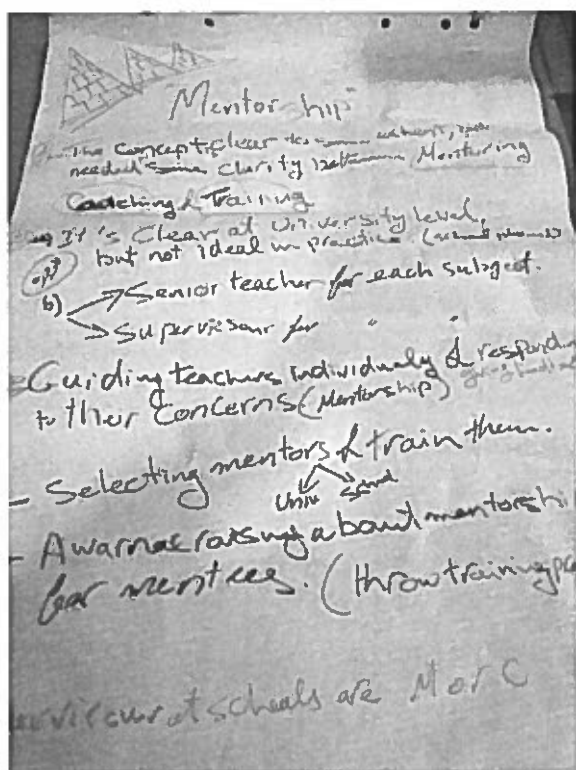 Mentorship
The concept clear to some extent,
needed some clarity between Mentoring
Coaching & Training
It's clear at University level,
but not ideal in practice.
b) Senior teacher for each subject.
Supervisour for " "
Guiding teachers individualy & responding
to ther concerns (Mentorship)
- Selecting mentors & train them.
Univ School
- Awarnes raising about mentorshi
for mentees. (throw training
at scheals are M or C